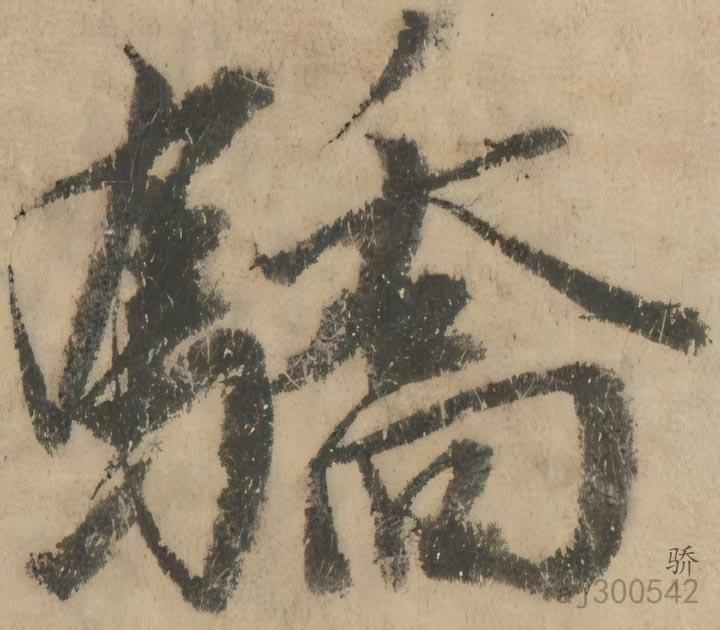 驕
骄
aj300542